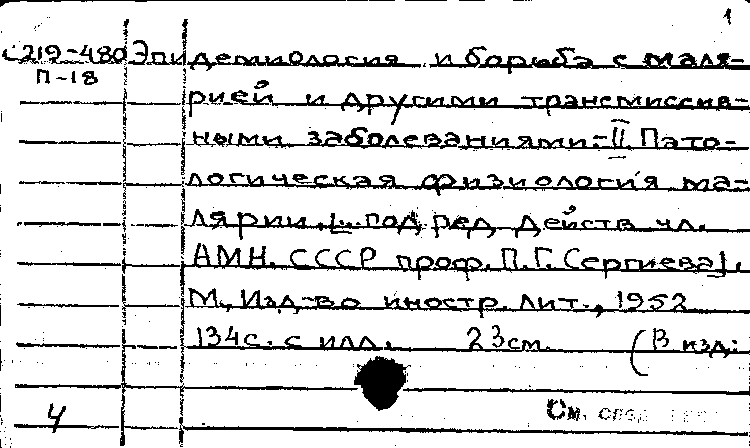 1
С219-480 Эпидемиология и борьба с маля-
П-18
рией и другими трансмиссив-
ными заболеваниями-II. Пато-
логическая физиология ма-
лярии. [... под ред. действ. чл.
АМН. СССР проф. П.Г. Сергиева].
М., Изд-во иностр. лит., 1952
134с. с илл. 23см. (В изд:
4
См. след.